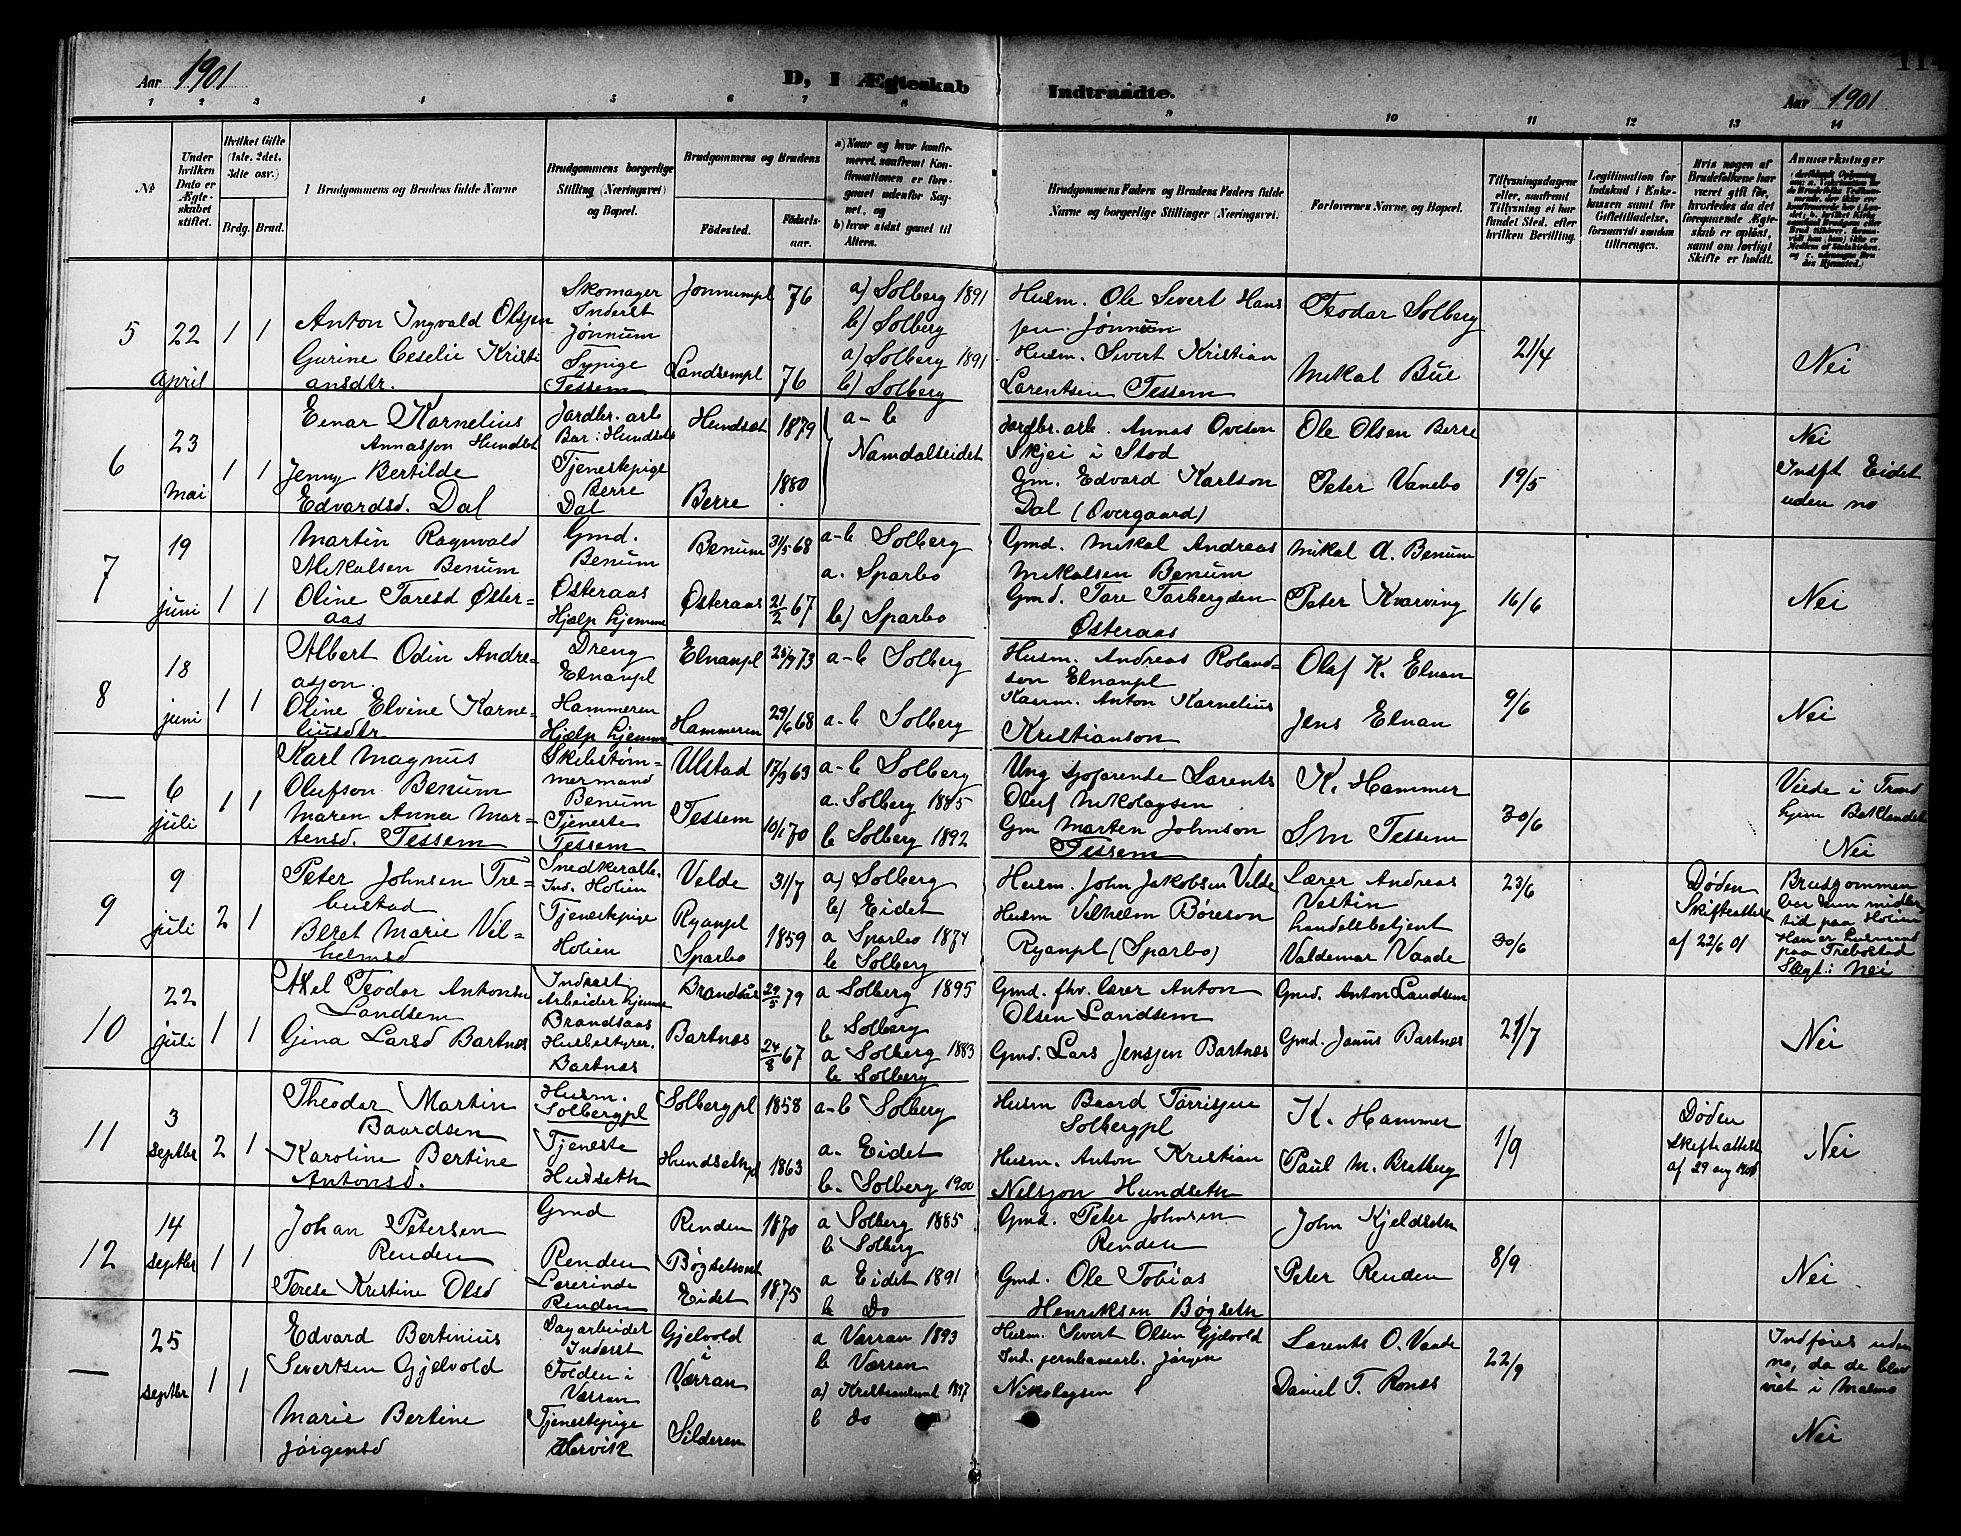 Aar 1901
D, I Ægteskab Indtraadte.
Aar 1901
114
1 2 3 4 5 6 7 8 9 10 11 12 13 14
No
Under hvilken Dato er Ægteskabet stiftet.
Hvilket Gifte (1ste, 2det, 3die osv.)
Brdg. Brud.
Brudgommens og Brudens fulde Navne
Brudgommens borgerlige Stilling (Næringsvei) og Bopæl.
Brudgommens og Brudens
Fødested.
Fødselsaar.
a) Naar og hvor konfirmeret, saafremt Konfirmationen er foregaaet udenfor Sognet, og
b) hvor sidst gaaet til Alters.
Brudgommens Faders og Brudens Faders fulde Navne og borgerlige Stillinger (Næringsvei.
Forlovernes Navne og Bopæl.
Tillysningsdagene eller, saafremt Tillysning ei har fundet Sted, efter hvilken Bevilling.
Legitimation for Indskud i Enkekassen samt for Giftetilladelse, forsaavidt saadan tiltrænges.
Hvis nogen af Brudefolkene har været gift før, hvorledes da det foregaaende Ægteskab er opløst, samt om lovligt Skifte er holdt.
Anmærkninger
5
22 april
1 1
Anton Ingvald Olsjen
Gurine Ceselie Kristi
ansdtr.
Skomager
Inderst
Jönnum
Sypige
Tessem
Jönnumpl 76
Landsempl 76
a) Solberg 1891
b) Solberg
a) Solberg 1891
b) Solberg
Husm. Ole Sivert Hans
jen Jönnum
Husm. Sivert Kristian
Larentsen Tessem
Teodor Solberg
Mikal Bue
21/4
Nei
6
23 mai
1 1
Einar Kornelius
Annasjon Hundset
Jenny Bertilde
Edvardsd. Dal
Jordbr. arb
Bar: Hundseth
Tjenestepige
Berre
Dal
Hundset 1879
Berre 1880
a-b
Namdalseidet
Jordbr. arb. Annas Oveson
Skjei i Stod
Gm. Edvard Karlson
Dal (Overgaard)
Ole Olsen Berre
Peter Vanebo
19/5
Nei
Indft Eidet
uden no
7
19 juni
1 1
Martin Ragnvald
Mikalsen Benum
Oline Toresd Øster=
aas
Gmd.
Benum
Østeraas
Hjælp hjemme
Benum 31/5 68
Østeraas 21/2 67
a-b Solberg
a. Sparbo
b) Sparbo
Gmd. Mikal Andreas
Mikalsen Benum
Gmd. Tore Torbergsen
Østeraas
Mikal A. Benum
Peter Kvarving
16/6
Nei
8
18 juni
1 1
Albert Odin Andre=
asjon.
Oline Elvine Korne=
liusdtr
Dreng
Elnanpl
Hammeren
Hjælp hjemme
Elnanpl 25/7 73
Hammeren 29/6 68
a-b Solberg
a-b Solberg
Husm. Andreas Roland=
son Elnanpl
Husm. Anton Kornelius
Kristianson
Olaf K. Elnan
Jens Elnan
9/6
Nei
—
6 juli
1 1
Karl Magnus
Olufson Benum
Maren Anna Mor=
tensd. Tessem
Skibstøm=
mermand
Benum
Tjeneste
Tessem
Ulstad 17/3 63
Tessem 10/1 70
a-b Solberg
a. Solberg 1885
b Solberg 1892
Ung sjøfarende Larents
Oluf Nikolaysen
Gm Morten Johnson
Tessem
K. Hammer
S M Tessem
30/6
Viede i Trond
hjem Baklandet
Nei
9
9 juli
2 1
Peter Johnsen Tre=
bustad
Beret Marie Vil=
helmsd
Snedkerarb.
Ind. Holien
Tjenestepige
Holien
Velde 31/7
Ryanpl
Sparbo 1859
a) Solberg
b) Eidet
a Sparbo 1874
b Solberg
Husm. John Jakobsen Velde
Husm Vilhelm Böreson
Ryanpl (Sparbo)
Lærer Andreas
Vestin
handelsbetjent
Valdemar Vaade
23/6
30/6
Døden
Skifteattest
af 22/6 01
Brudgommen
bor kun midler
tid paa Holien
Han er husmand
paa Trebostad
Slegt: Nei
10
22 juli
1 1
Axel Teodor Antonsen
Landsem
Gina Larsd Bartnes
Inderst
Arbeider hjemme
Brandsaas
Husbestyrer.
Bartnes
Brandsås 29/5 79
Bartnes 24/8 67
a Solberg 1895
b Solberg
a Solberg 1883
b Solberg
Gmd. fhv. lærer Anton
Olsen Landsem
Gmd. Lars Jensjen Bartnes
Gmd. Anton Landsem
Gmd. Janus Bartnes
21/7
Nei
11
3 septbr
2 1
Theodor Martin
Baardsen
Karoline Bertine
Antonsd.
Husm.
Solbergpl
Tjeneste
Hudseth
Solbergpl 1858
Hundsethpl 1863
a-b Solberg
a. Eidet
b. Solberg 1900
Husm Baard Torrisjen
Solbergpl
Husm. Anton Kristian
Nelsjon Hundseth
K. Hammer
Paul M. Bratberg
1/9
Døden
Skifteattest
af 29 aug 1901
Nei
12
14 septbr
1 1
Johan Petersen
Renden
Terese Kristine Olsd
Gmd
Renden
Lærerinde
Renden
Renden 1870
Bøgsetvært
Eidet 1875
a Solberg 1885
b Solberg
a Eidet 1891
b Do
Gmd. Peter Johnsen
Renden
Gmd. Ole Tobias
Henriksen Bøgseth
John Kjeldseth
Peter Renden
8/9
Nei
—
25 septbr
1 1
Edvard Bertinius
Sivertsen Gjelvold
Marie Bertine
Jörgensd
Dagarbeider
Inderst
Folden i
Værran
Tjenestepige
Hervik
Gjelvold
i
Værran
Silderen
a Værran 1893
b Værran
a) Kristiansund 1897
b do
Husm. Sivert Olsen Gjelvold
Ind. jernbanearb. Jörgen
Nikolaysen
Larents O. Vaade
Daniel T. Ronss
22/9
Indføres uden
no, da de blev
viet i Malmo
Nei